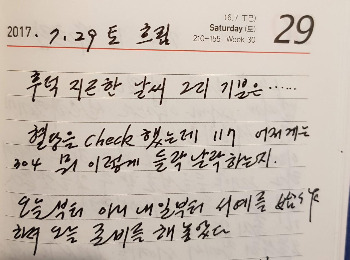 (6.7 丁巳)
2017. 7. 29 토 흐림
Saturday (토)
210-155 Week 30
29
후덕 지근한 날씨 그리 기분은……
혈당을 check 했는데 117 어제는
304 뭐 이렇게 들락날락하는지.
오늘부터 아니 내일부터 서예를 始作
하려 오늘 준비를 해 놓았다